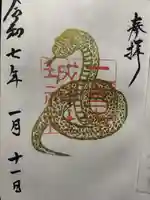 奉拝
令和七年
一月十一日